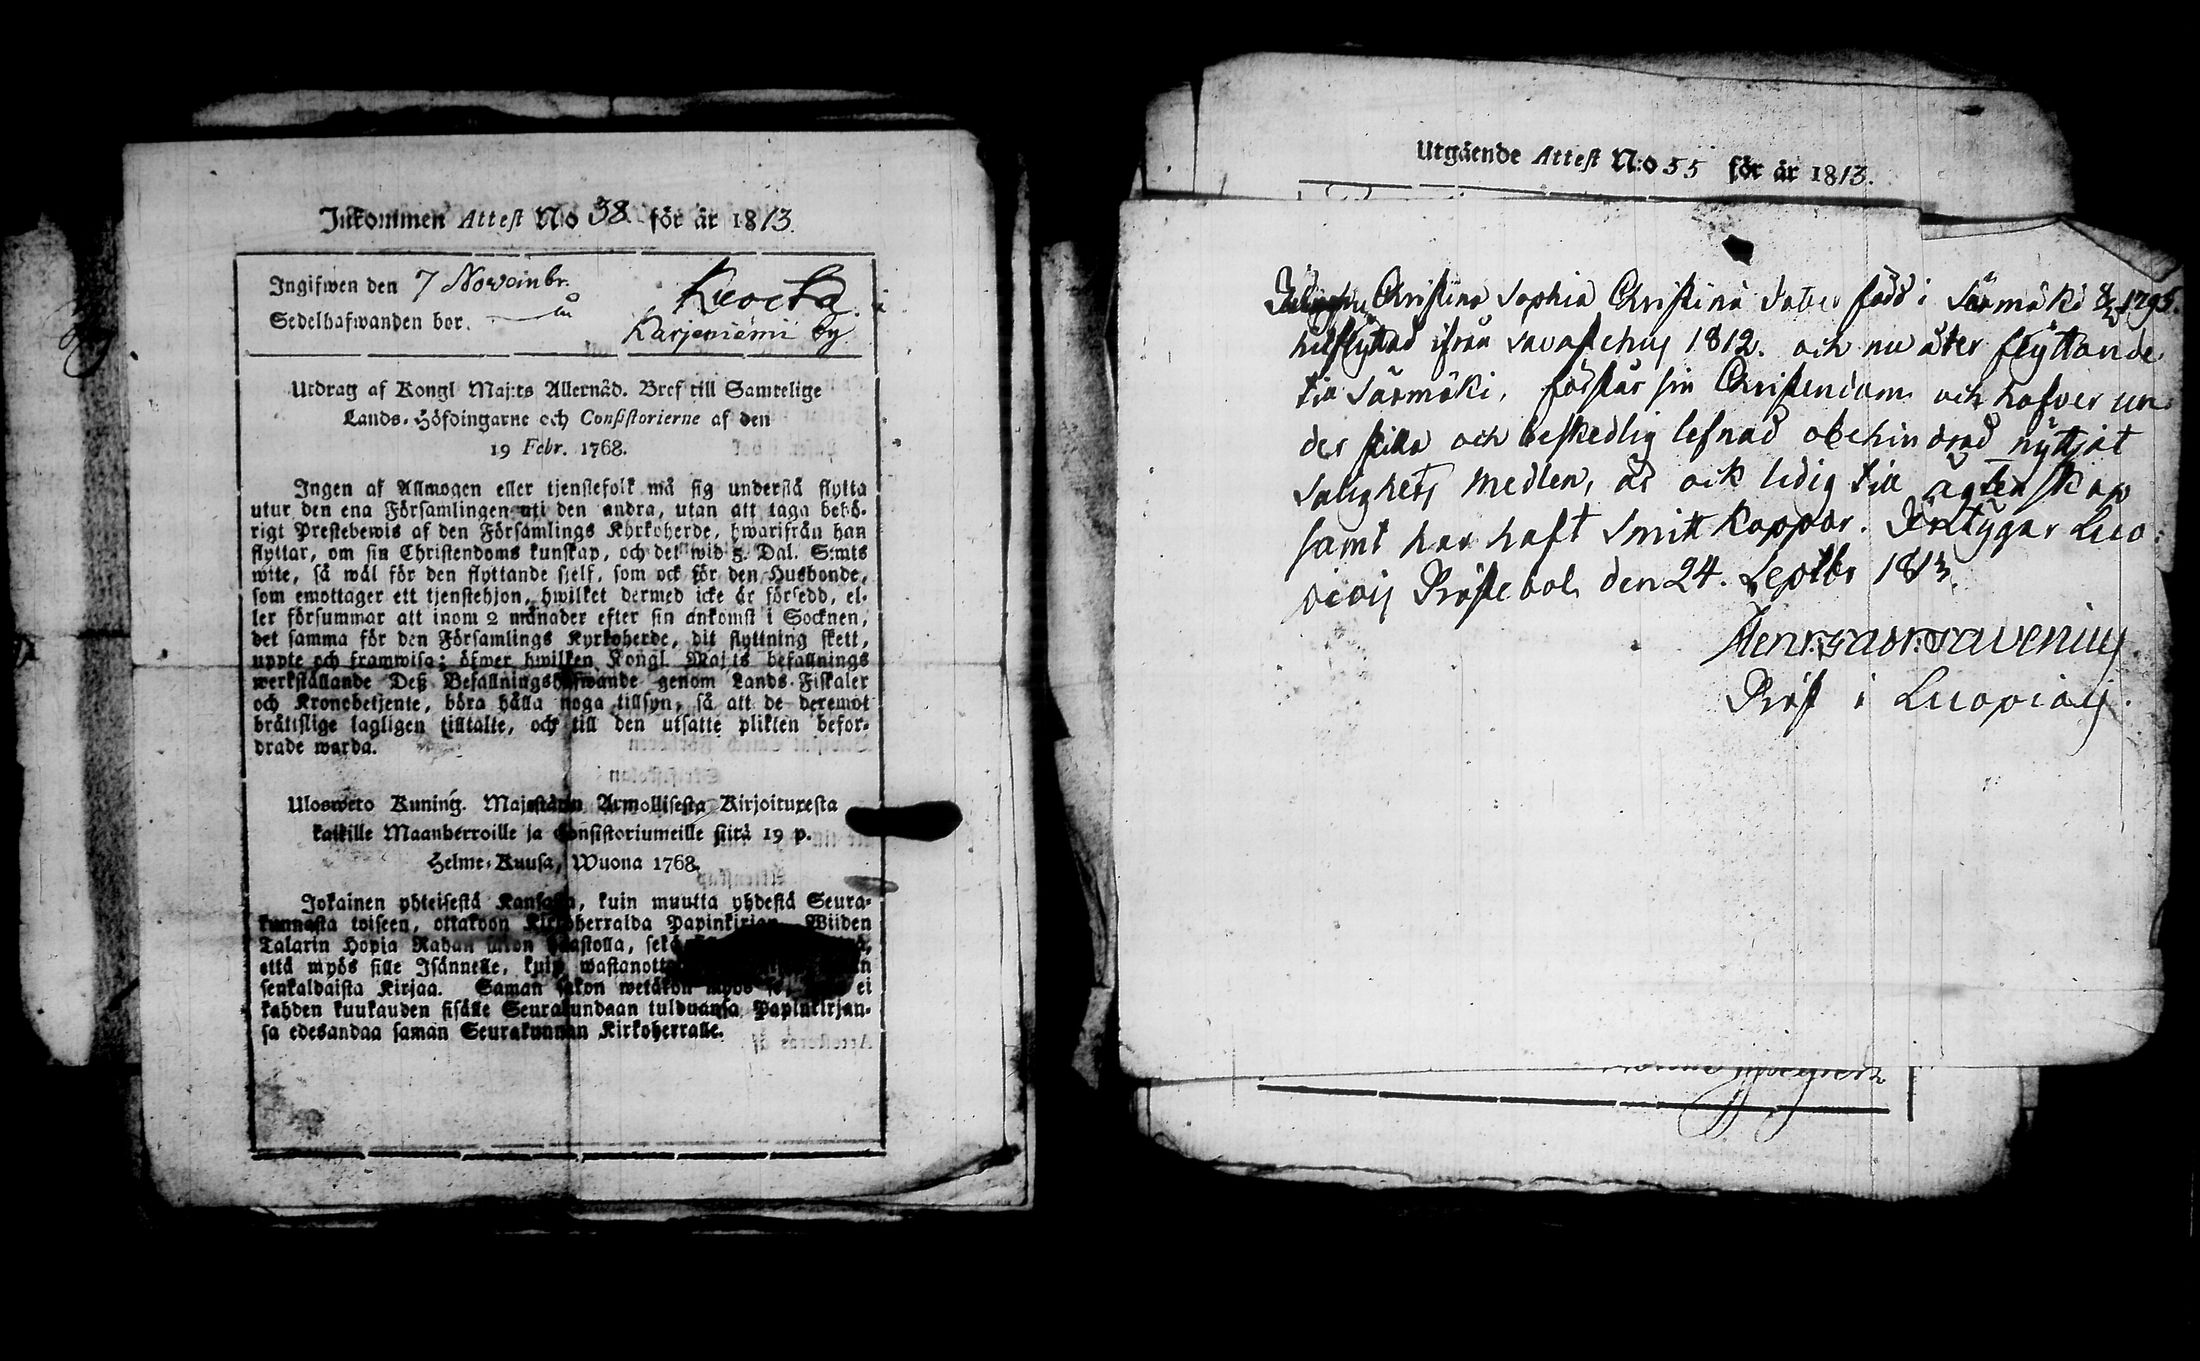 Inkommen Attest N:o 38 för år 1813.
Ingifwen den 7 Novembr.
Sedelhafwanden bor. å
Kuocka
Karjeniemi by
Utdrag af Kongl Maj:ts Allernåd. Bref till Samtelige
Lands-Höfdingarne och Consistorierne af den
19 Febr. 1768.
Ingen af Allmogen eller tjenstefolk må sig understå flytta
utur den ena Församlingen uti den andra, utan att taga behö-
rigt Prestebewis af den Församlings Kyrkoherde, hwarifrån han
flyttar, om sin Christendoms kunskap, och det wid 5. Dal. S:mts
wite, så wäl för den flyttande sjelf, som ock för den Husbonde,
som emottager ett tjenstehjon, hwilket dermed icke är försedd, el-
ler försummar att inom 2 månader efter sin ankomst i Socknen,
det samma för den Församlings Kyrkoherde, dit flyttning skett,
uppte och framwisa; öfwer hwilken Kongl Maj:ts befallnings
werkställande Deß Befallningshafwande genom Lands-Fiskaler
och Kronobetjente, böra hålla noga tillsyn, så att de deremot
bråttslige lagligen tilltalte, och till den utsatte plikten befor-
drade warda.
Ulosweto Kuning. Majestätin Armollisesta Kirjoituxesta
kaikille Maanherroille ja Consistoriumeille siitä 19 p.
Helme-Kuusa, Wuona 1768.
Jokainen yhteisestä Kansasta, kuin muutta yhdestä Seura-
kunnasta toiseen, ottakoon Kirkoherralda Papinkirjan Wiiden
Talarin Hopia Rahan sakon haastolla, sekä
että myös sille Isännelle, kuin wastanotta
senkaldaista Kirjaa. Saman sakon wetäkön myös se, ei
kahden kuukauden sisälle Seurakundaan tulduansa Papinkirjan-
sa edesandaa saman Seurakunnan Kirkoherralle.
Utgående Attest N:o 55 för år 1813.
Christina Sophia Christina dotter född i Särmäki 1795.
hitflyttad ifrån Tavastehus 1812. och nu åter flyttande
till Särmäki, förstår sin Christendom och hafver un-
der stilla och beskedlig lefnad obehindrad nyttjat
Salighets medlen, är ock ledig till ägtenskap
samt har haft Smittkoppor. Intygar Luo-
piois Prästebol den 24. Septbr 1813.
Henr. Gabr. Tavenius
Präst i Luopiois.